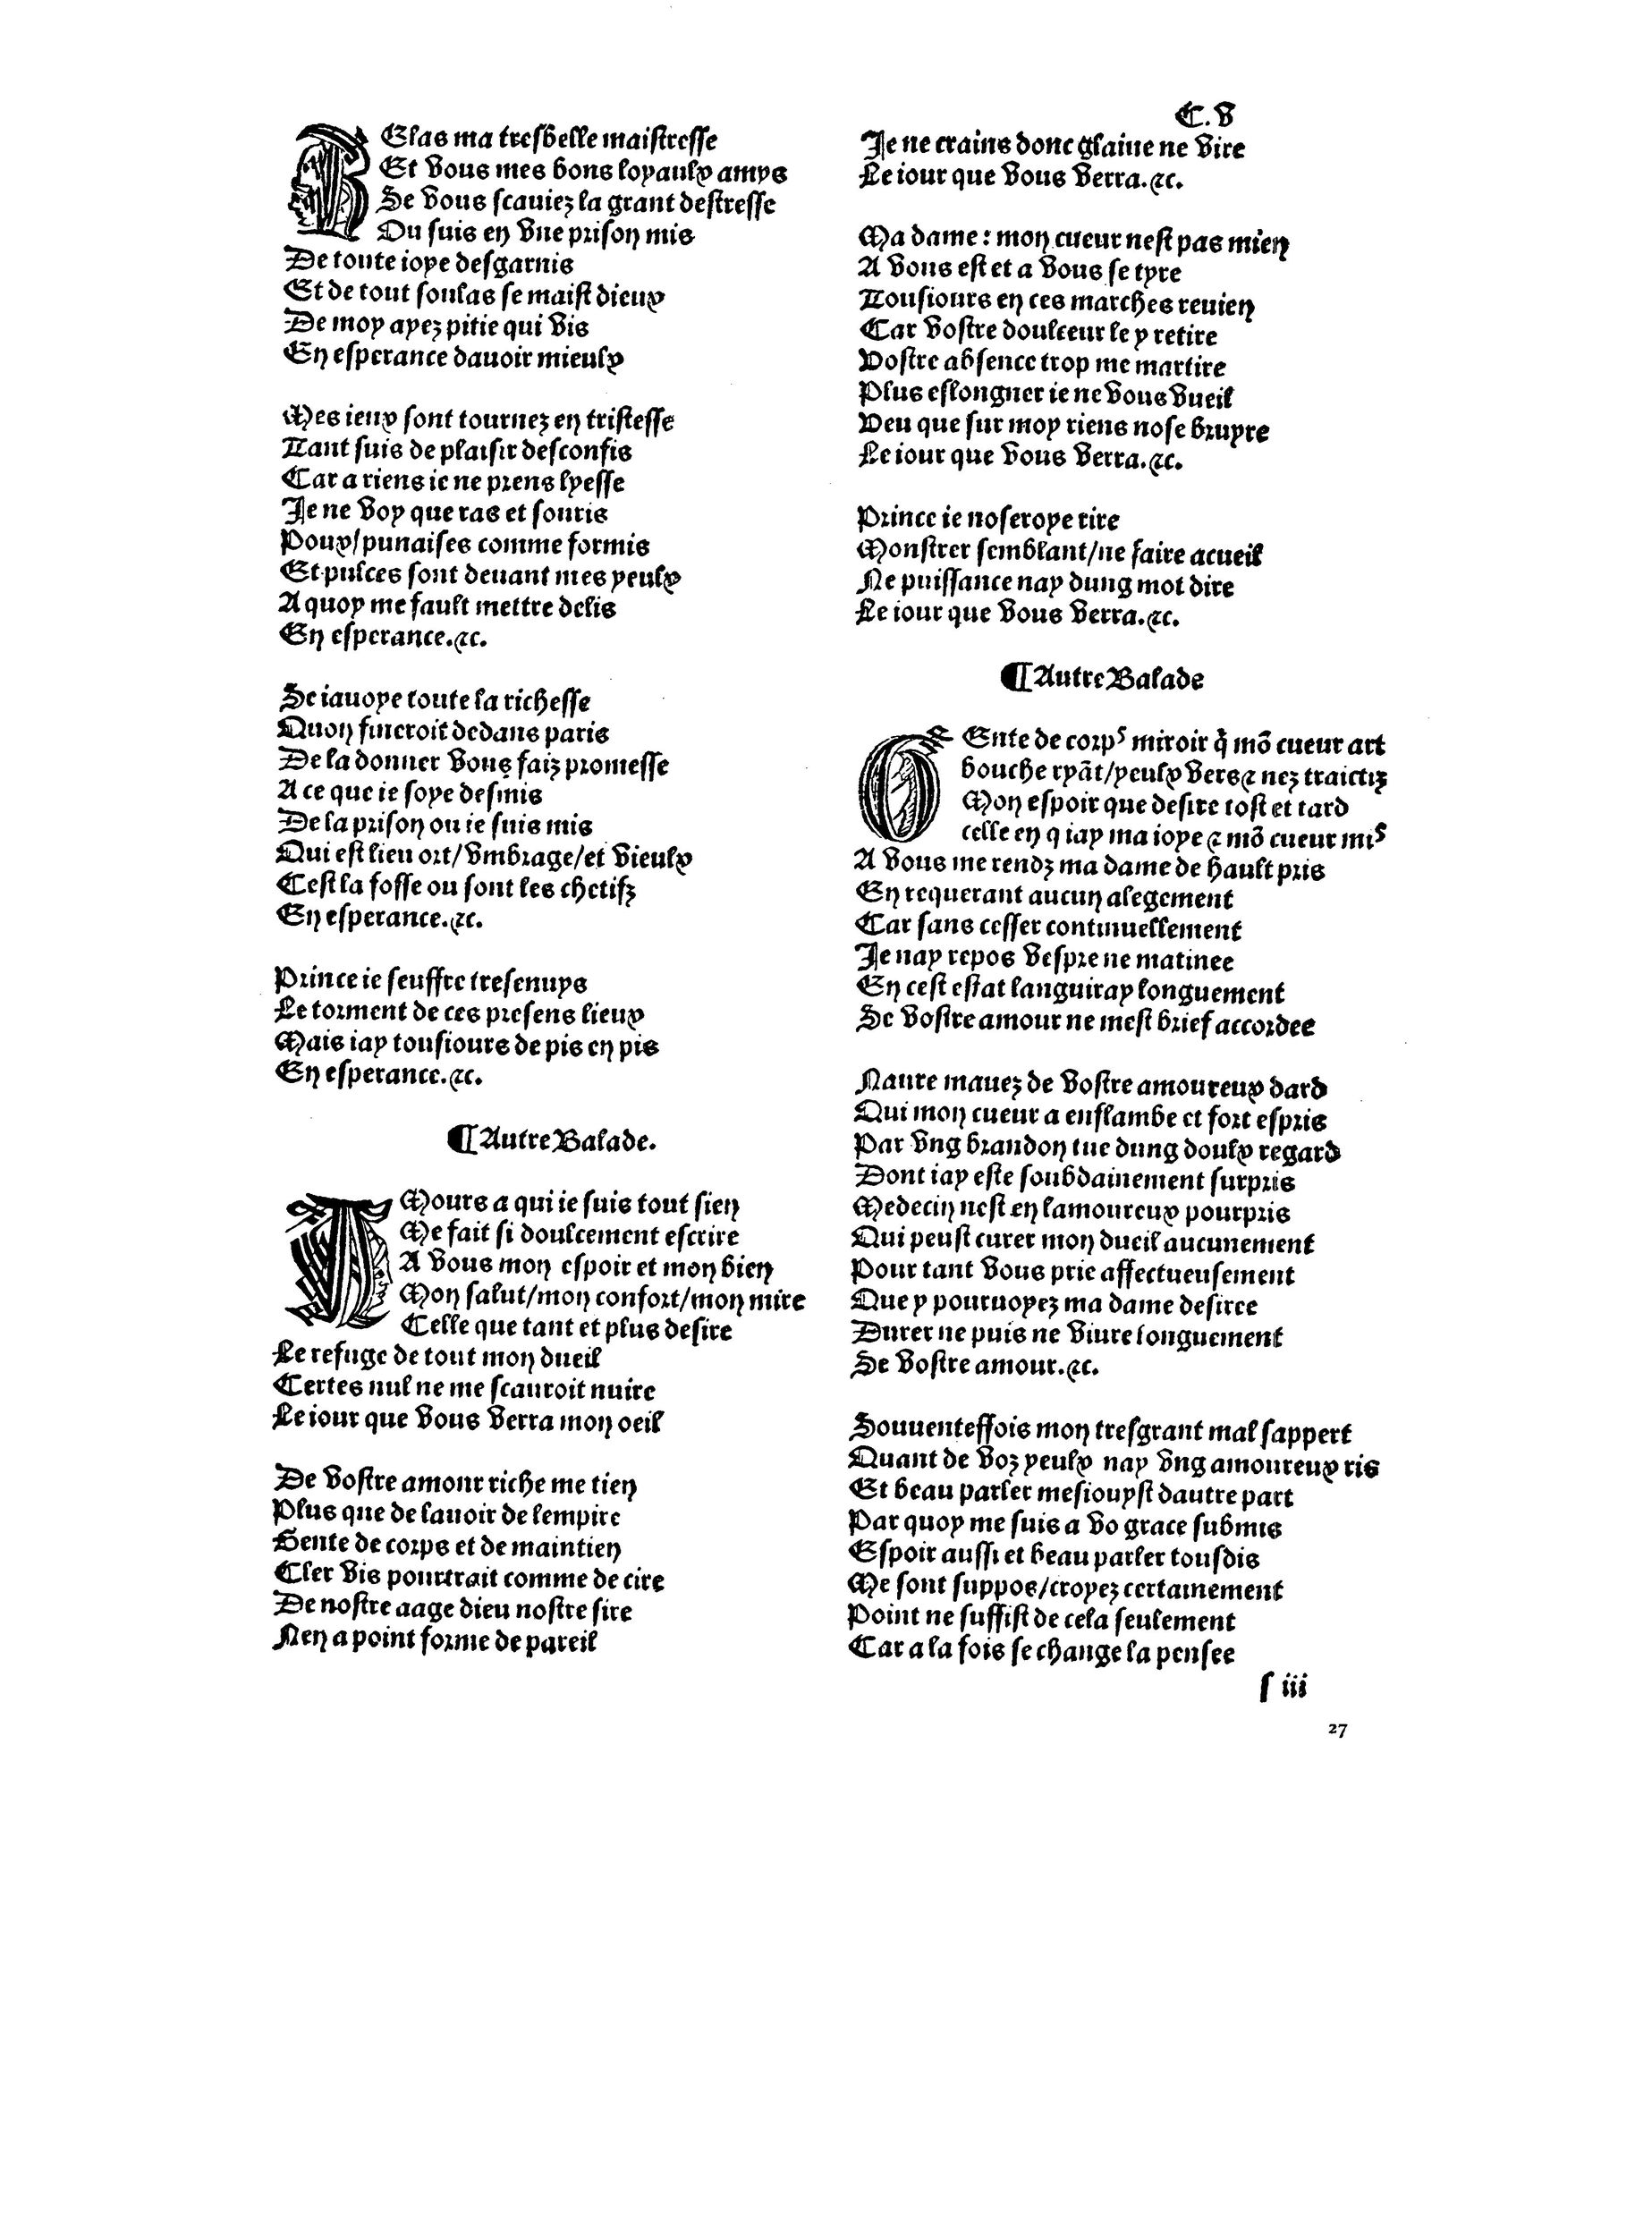 C.v
HElas ma tresbelle maistresse
Et vous mes bons loyaulx amys
Se vous scauiez la grant destresse
Ou suis en vne prison mis
De toute ioye desgarnis
Et de tout soulas se maist dieux
De moy ayez pitie qui vis
En esperance dauoir mieulx
Mes ieux sont tournez en tristesse
Tant suis de plaisir desconfis
Car a riens ie ne prens lyesse
Je ne voy que ras et souris
Poux/punaises comme formis
Et pulces sont deuant mes yeulx
A quoy me fault mettre delis
En esperance.⁊c.
Se iauoye toute la richesse
Quon fineroit dedans paris
De la donner vous faiz promesse
A ce que ie soye desmis
De la prison ou ie suis mis
Qui est lieu ort/vmbrage/et vieulx
Cest la fosse ou sont les chetifz
En esperance.⁊c.
Prince ie seuffre tresenuys
Le torment de ces presens lieux
Mais iay tousiours de pis en pis
En esperance.⁊c.
¶ Autre Balade.
AMours a qui ie suis tout sien
Me fait si doulcement escrire
A vous mon espoir et mon bien
Mon salut/mon confort/mon mire
Celle que tant et plus desire
Le refuge de tout mon dueil
Certes nul ne me scauroit nuire
Le iour que vous verra mon oeil
De vostre amour riche me tien
Plus que de lauoir de lempire
Gente de corps et de maintien
Cler vis pourtrait comme de cire
De nostre aage dieu nostre sire
Nen a point forme de pareil
Je ne crains donc glaiue ne vire
Le iour que vous verra.⁊c.
Ma dame: mon cueur nest pas mien
A vous est et a vous se tyre
Tousiours en ces marches reuien
Car vostre doulceur le y retire
Vostre absence trop me martire
Plus eslongner ie ne vous vueil
Veu que sur moy riens nose bruyre
Le iour que vous verra.⁊c.
Prince ie noseroye rire
Monstrer semblant/ne faire acueil
Ne puissance nay dung mot dire
Le iour que vous verra.⁊c.
¶ Autre Balade
GEnte de corpˢ miroir q̃ mõ cueur art
bouche ryãt/yeulx vers⁊ nez traictiz
Mon espoir que desire tost et tard
celle en q iay ma ioye ⁊ mõ cueur miˢ
A vous me rendz ma dame de hault pris
En requerant aucun alegement
Car sans cesser continuellement
Je nay repos vespre ne matinee
En cest estat languiray longuement
Se vostre amour ne mest brief accordee
Naure mauez de vostre amoureux dard
Qui mon cueur a enflambe et fort espris
Par vng brandon tue dung doulx regard
Dont iay este soubdainement surpris
Medecin nest en lamoureux pourpris
Qui peust curer mon dueil aucunement
Pour tant vous prie affectueusement
Que y pouruoyez ma dame desiree
Durer ne puis ne viure longuement
Se vostre amour.⁊c.
Souuenteffois mon tresgrant mal sappert
Quant de voz yeulx nay vng amoureux ris
Et beau parler mesiouyst dautre part
Par quoy me suis a vo grace submis
Espoir aussi et beau parler tousdis
Me sont suppos/croyez certainement
Point ne suffist de cela seulement
Car a la fois se change la pensee
s iii
27